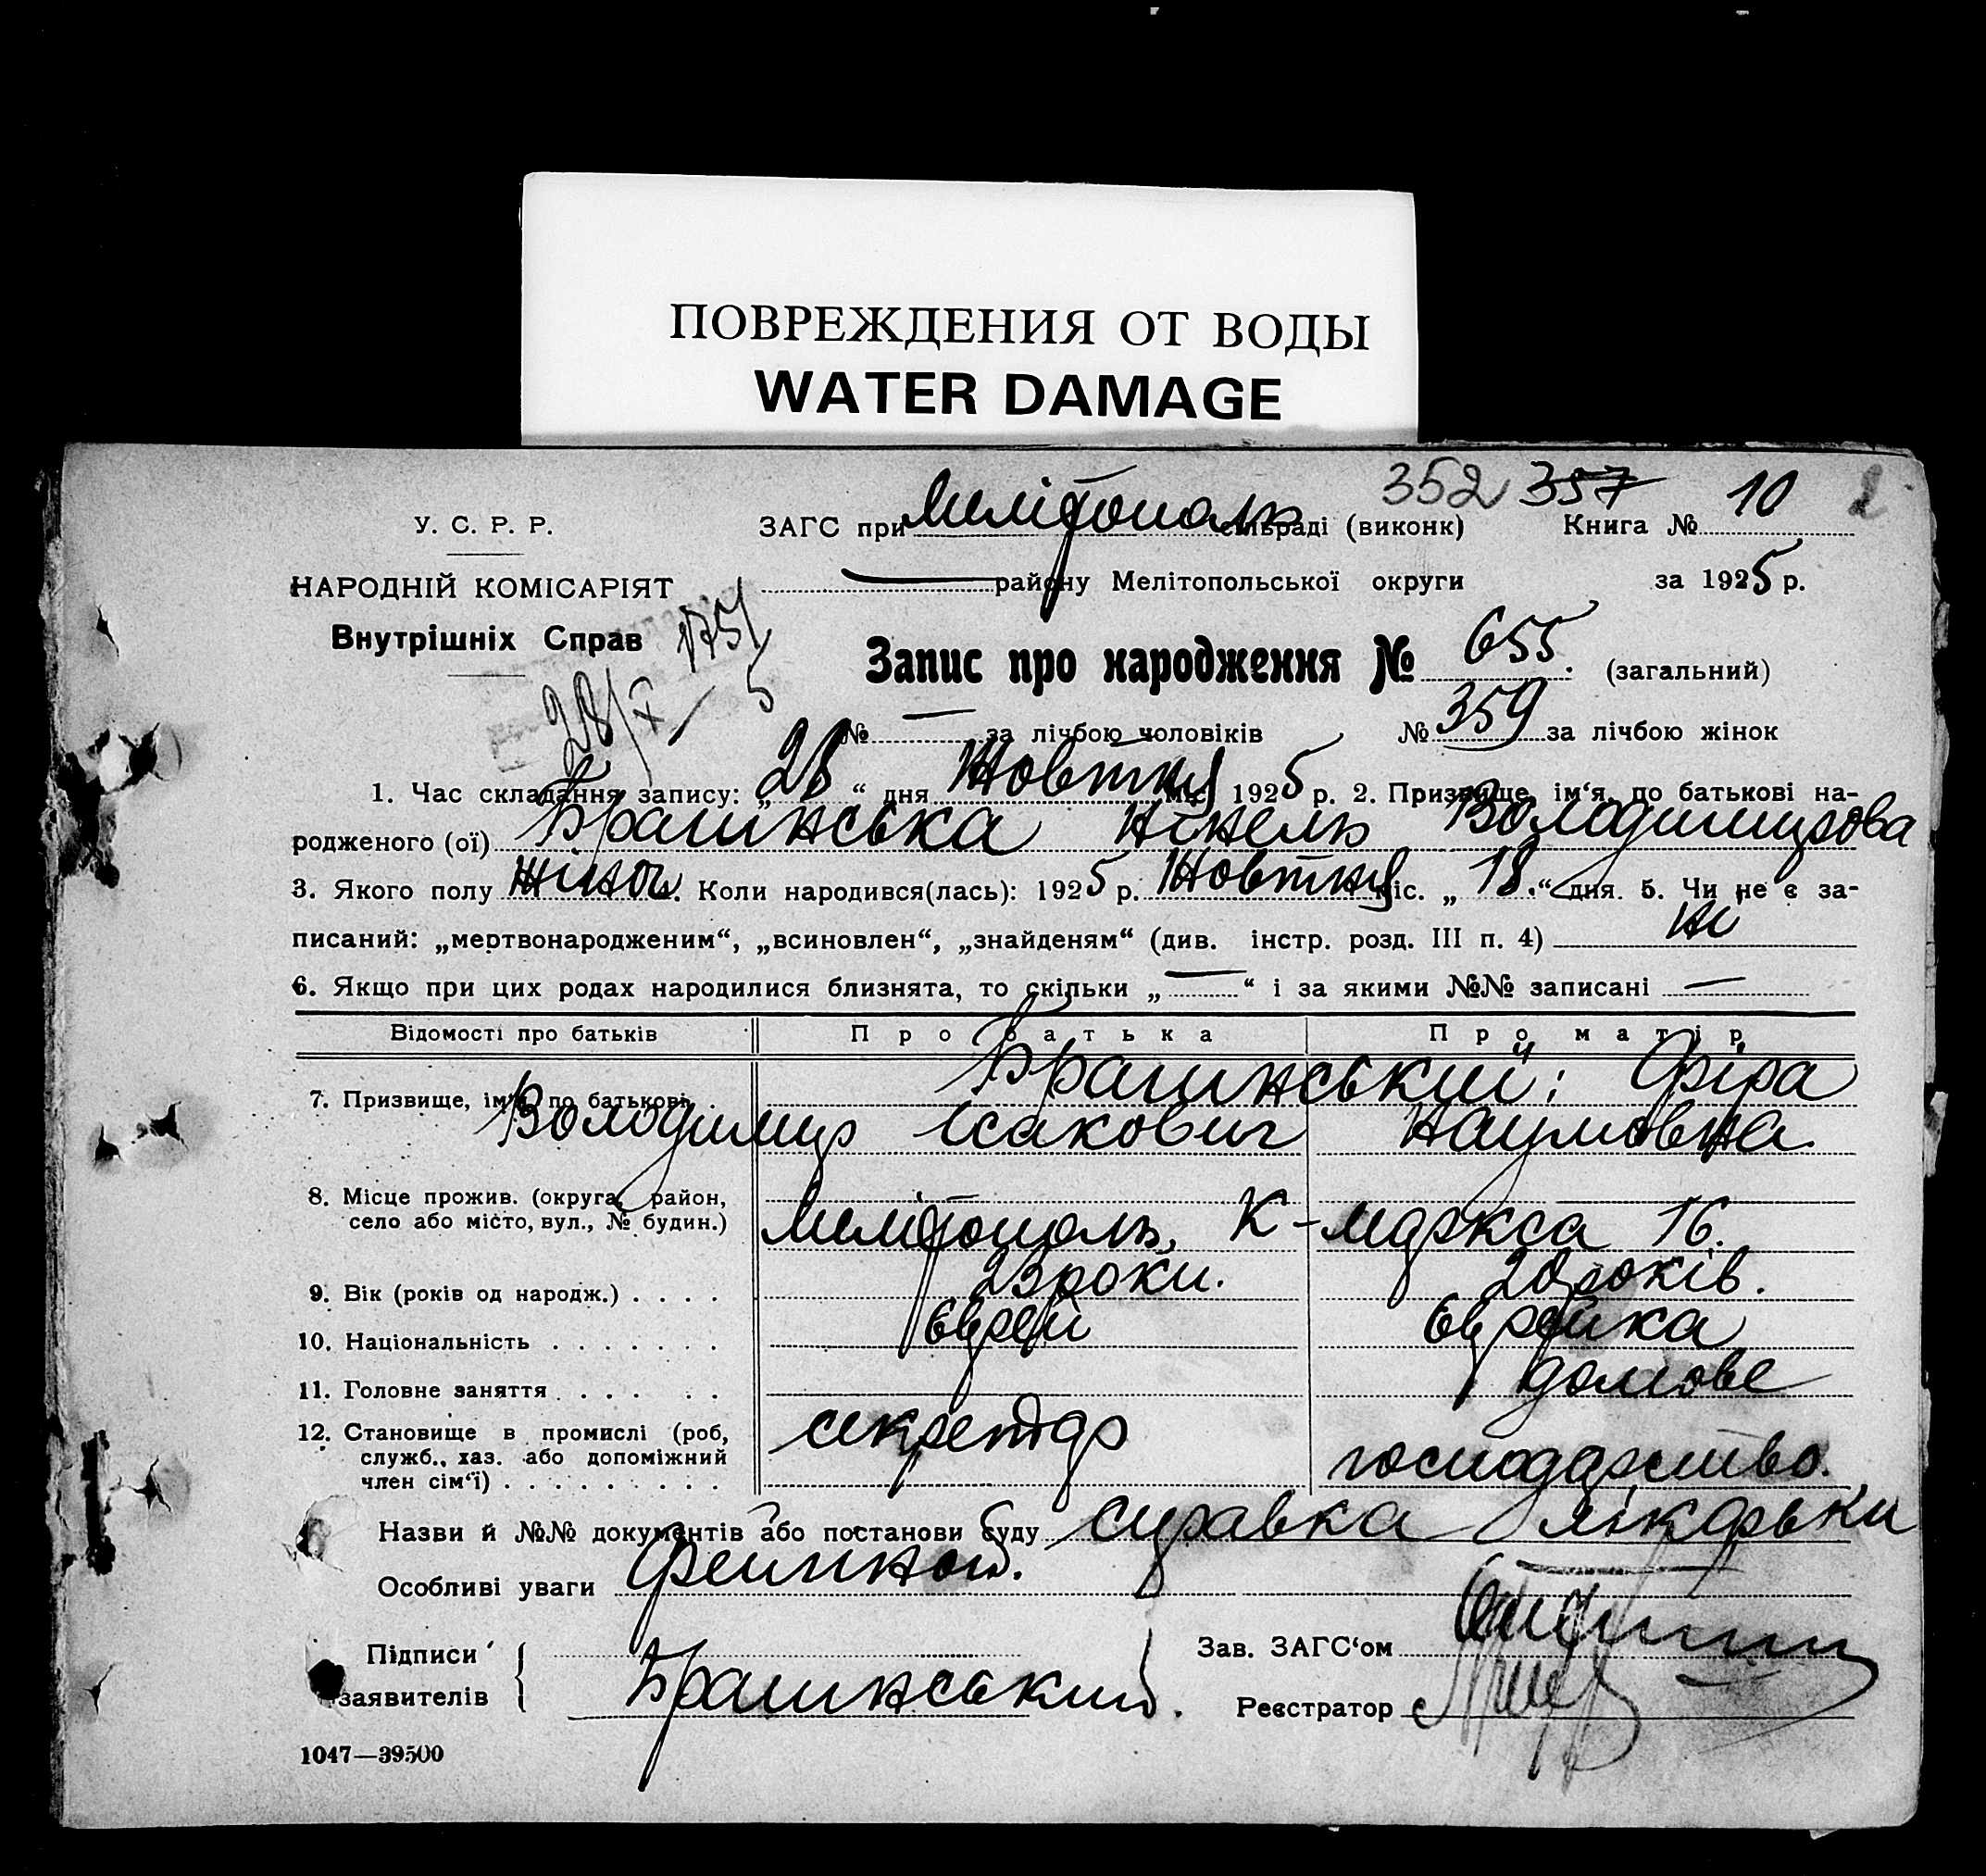 ПОВРЕЖДЕНИЯ ОТ ВОДЫ
WATER DAMAGE
352 357 10
У. С. Р. Р. ЗАГС при Мелітополь сільраді (виконк) Книга №
НАРОДНІЙ КОМІСАРІЯТ — району Мелітопольської округи за 1925 р.
Внутрішніх Справ
28/X – 5
Запис про народження № 655. (загальний)
№ — за лічбою чоловіків № 359 за лічбою жінок
1. Час складання запису: „28“ дня Жовтня міс. 1925 р. 2. Призвище, ім‘я, по батькові на-
родженого (ої) Брагинська Нінель Володимирова
3. Якого полу жіноч. Коли народився(лась): 1925 р. Жовтня міс. „18.“ дня. 5. Чи не є за-
писаний: „мертвонародженим“, „всиновлен“, „знайденям“ (див. інстр. розд. III п. 4) ні
6. Якщо при цих родах народилися близнята, то скільки „—“ і за якими №№ записані —
Відомості про батьків Про батька Про матір
7. Призвище, ім‘я, по батькові Брагинський; Фіра
Володимир Ісакович Наумовна
8. Місце прожив. (округа, район,
село або місто, вул., № будин.) Мелітополь, К-Маркса 16.
9. Вік (років од народж.) . . . . 23 роки. 20 років.
10. Національність . . . . . . . Єврей Єврейка
11. Головне заняття . . . . . . домове
12. Становище в промислі (роб, секретар
служб., хаз. або допоміжний господарство.
член сім‘ї) . . . . . . . . .
Назви й №№ документів або постанови суду справка лікарьки
Особливі уваги
Підписи Зав. ЗАГС‘ом
заявителів Брагинський. Реєстратор
1047—39500